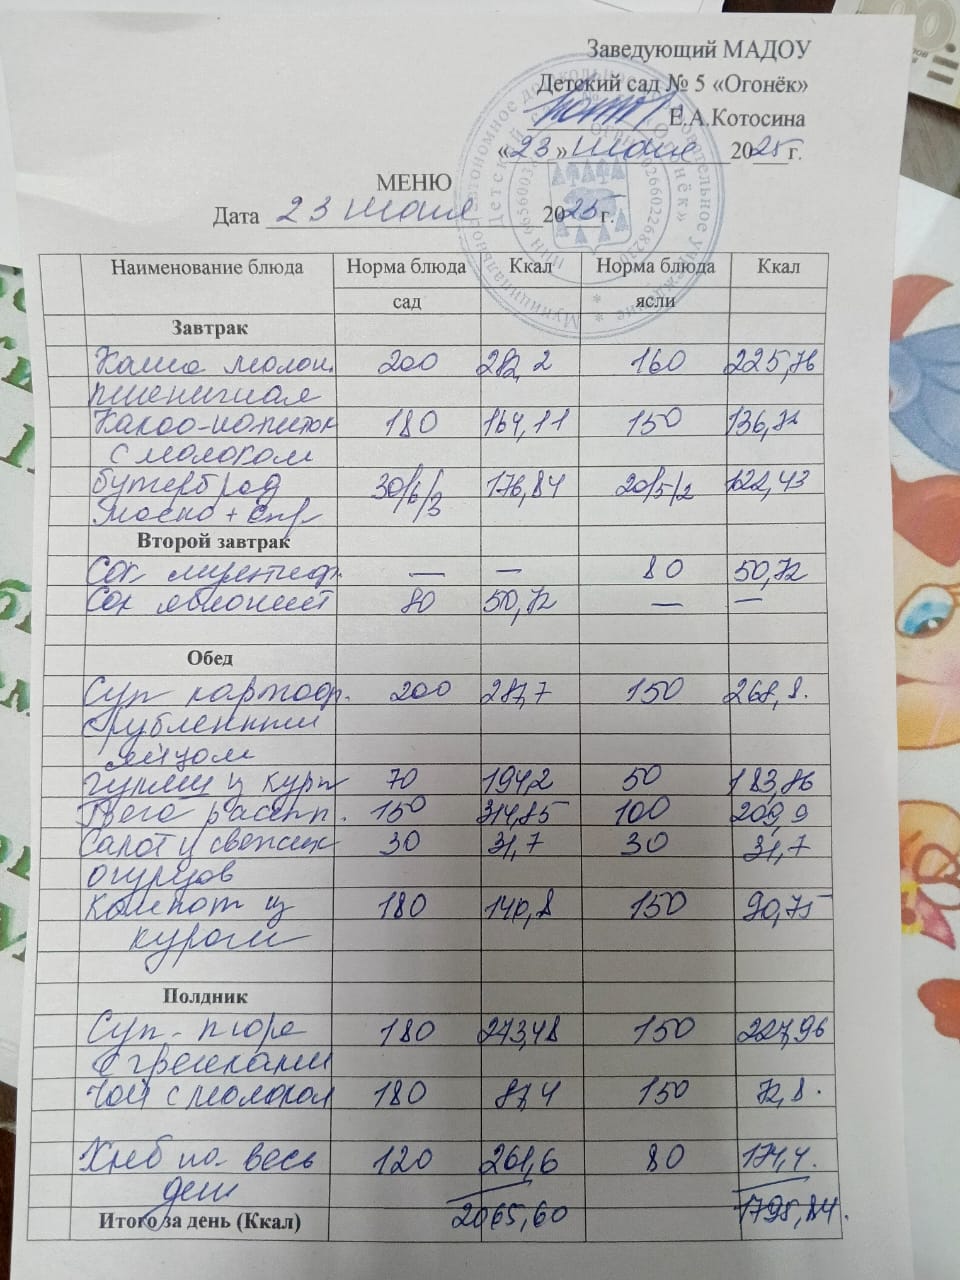 Заведующий МАДОУ
Детский сад № 5 «Огонёк»
Е.А.Котосина
«23» июня 2025 г.
МЕНЮ
Дата 23 июня 2025 г.
Наименование блюда Норма блюда Ккал Норма блюда Ккал
сад ясли
Завтрак
Каша молоч. 200 282,2 160 225,76
пшеничная
Какао-напиток 180 164,11 150 136,72
с молоком
Бутерброд 30/6/3 176,84 20/5/2 122,43
масло + сыр
Второй завтрак
Сок мультифр. — — 80 50,72
Сок яблочный 80 50,72 — —
Обед
Суп картоф. 200 287,7 150 268,8.
рубленным
яйцом
Гуляш из куры 70 194,2 50 183,86
Греча рассып. 150 314,85 100 209,9
Салат из свежих 30 31,7 30 31,7
огурцов
Компот из 180 140,8 150 90,75
кураги
Полдник
Суп-пюре 180 273,48 150 227,96
с гренками
Чай с молоком 180 87,4 150 72,8.
Хлеб на весь 120 261,6 80 174,4.
день
Итого за день (Ккал) 2065,60 1795,84.